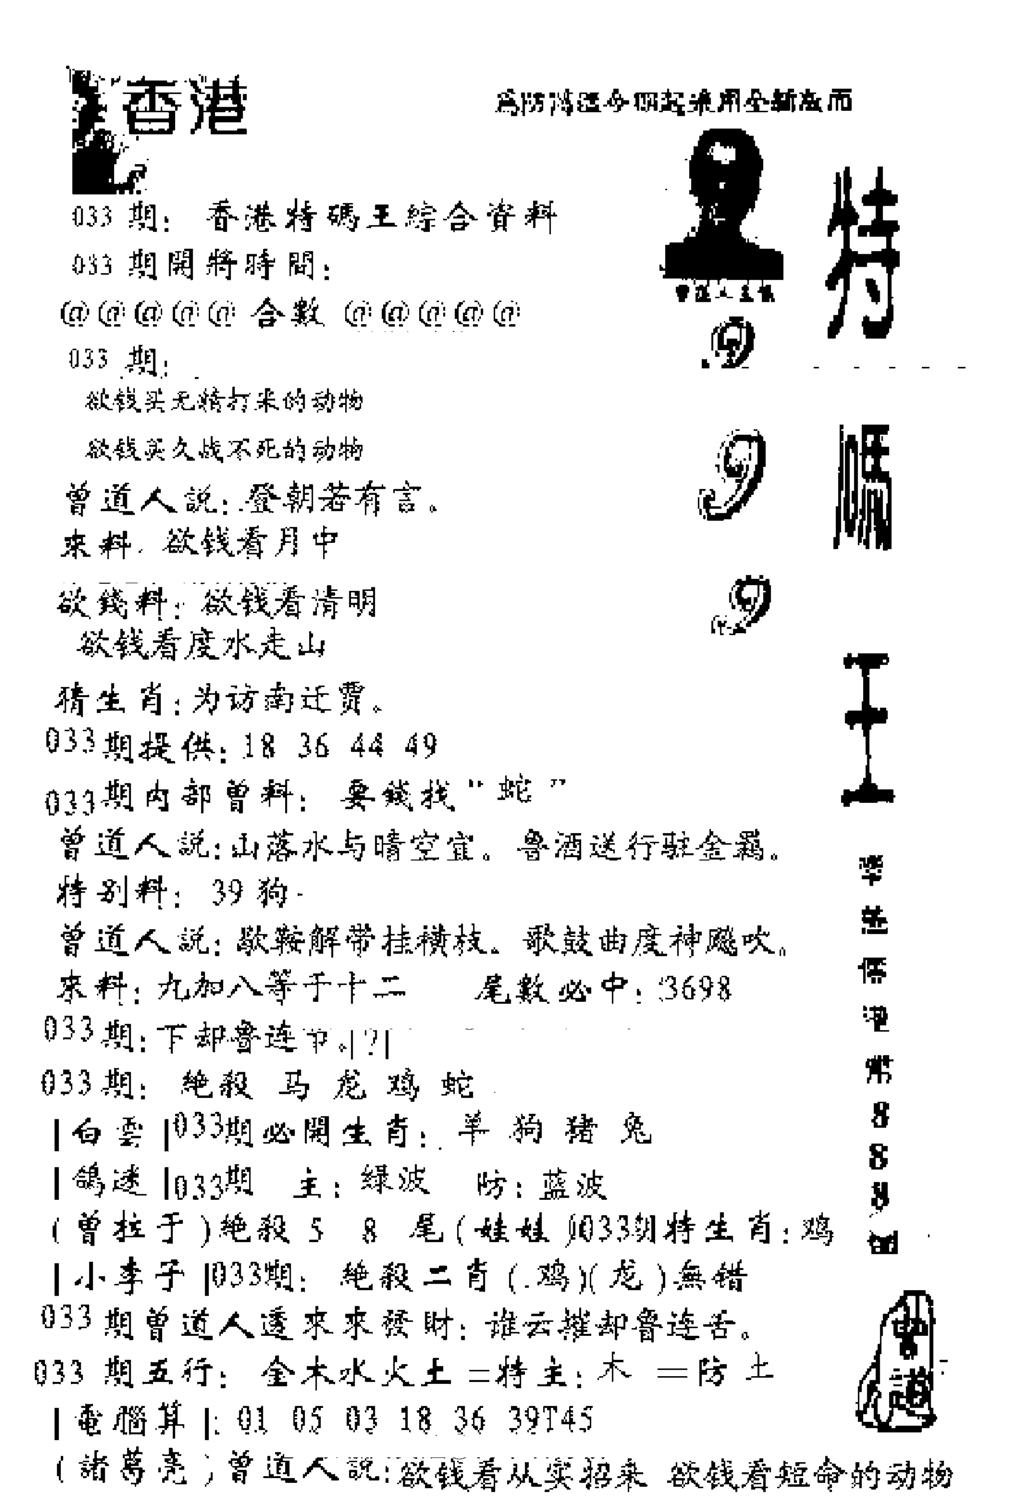 香港
特碼王
999
033 期: 香港特碼王綜合資料
033 期開將時間:
@@@@@ 合數 @@@@@
033 期:
欲钱买无精打采的动物
欲钱买久战不死的动物
曾道人説: 登朝若有言。
來料. 欲钱看月中
欲錢料: 欲钱看清明
欲钱看度水走山
猜生肖: 为访南迁贾。
033期提供: 18 36 44 49
033期内部曾料: 要錢找 “蛇”
曾道人説: 山落水与晴空宜。鲁酒送行驻金羁。
特别料: 39 狗
曾道人説: 歇鞍解带挂横枝。歌鼓曲度神飚吹。
來料: 九加八等于十二 尾數必中: 3698
033期: 下却鲁连节。|?|
033期: 絶殺 马 龙 鸡 蛇
|白雲|033期必開生肖: 羊 狗 猪 兔
|鴿迷|033期 主: 绿波 防: 蓝波
(曾拉于)絶殺 5 8 尾(娃娃)033期特生肖: 鸡
|小李子|033期: 絶殺二肖(鸡)(龙)無错
033期曾道人透來來發財: 谁云摧却鲁连舌。
033 期五行: 金木水火土 =特主: 木 =防 土
|電腦算|: 01 05 03 18 36 39T45
(諸葛亮)曾道人説: 欲钱看从实招来 欲钱看短命的动物
888
曾道